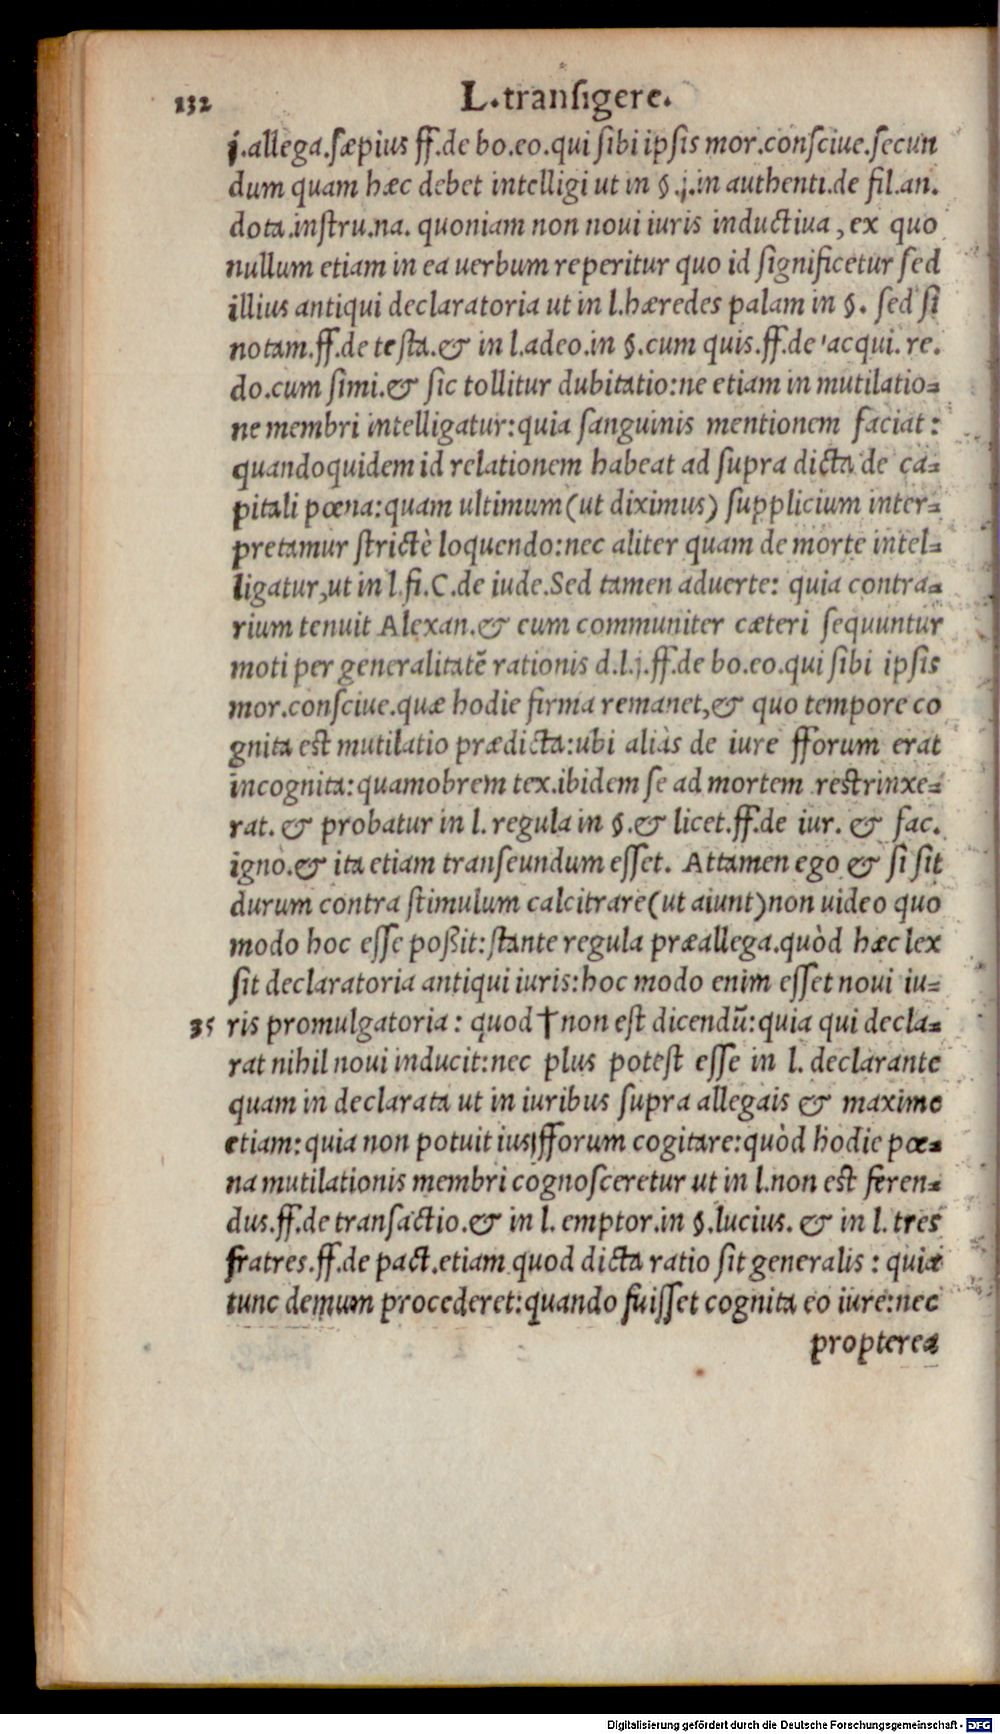 132 L.transigere.
j.allega.sæpius ff.de bo.eo.qui sibi ipsis mor.consciue.secun
dum quam hæc debet intelligi ut in §.j.in authenti.de fil.an.
dota.instru.na. quoniam non noui iuris inductiua, ex quo
nullum etiam in ea uerbum reperitur quo id significetur sed
illius antiqui declaratoria ut in l.hæredes palam in §. sed si
notam.ff.de testa.& in l.adeo.in §.cum quis.ff.de acqui. re.
do.cum simi.& sic tollitur dubitatio:ne etiam in mutilatio=
ne membri intelligatur:quia sanguinis mentionem faciat:
quandoquidem id relationem habeat ad supra dicta de ca=
pitali pœna:quam ultimum(ut diximus) supplicium inter=
pretamur strictè loquendo:nec aliter quam de morte intel=
ligatur,ut in l.fi.C.de iude.Sed tamen aduerte: quia contra=
rium tenuit Alexan.& cum communiter cæteri sequuntur
moti per generalitatē rationis d.l.j.ff.de bo.eo.qui sibi ipsis
mor.consciue.quæ hodie firma remanet,& quo tempore co
gnita est mutilatio prædicta:ubi aliàs de iure fforum erat
incognita:quamobrem tex.ibidem se ad mortem restrinxe=
rat. & probatur in l. regula in §.& licet.ff.de iur. & fac.
igno.& ita etiam transeundum esset. Attamen ego & si sit
durum contra stimulum calcitrare(ut aiunt)non uideo quo
modo hoc esse poßit:stante regula præallega.quòd hæc lex
sit declaratoria antiqui iuris:hoc modo enim esset noui iu=
35 ris promulgatoria: quod † non est dicendū:quia qui decla=
rat nihil noui inducit:nec plus potest esse in l. declarante
quam in declarata ut in iuribus supra allegais & maxime
etiam:quia non potuit ius fforum cogitare:quòd hodie pœ=
na mutilationis membri cognosceretur ut in l.non est feren=
dus.ff.de transactio.& in l. emptor.in §.lucius. & in l. tres
fratres.ff.de pact.etiam quod dicta ratio sit generalis: quia
tunc demum procederet:quando fuisset cognita eo iure:nec
propterea
Digitalisierung gefördert durch die Deutsche Forschungsgemeinschaft - DFG